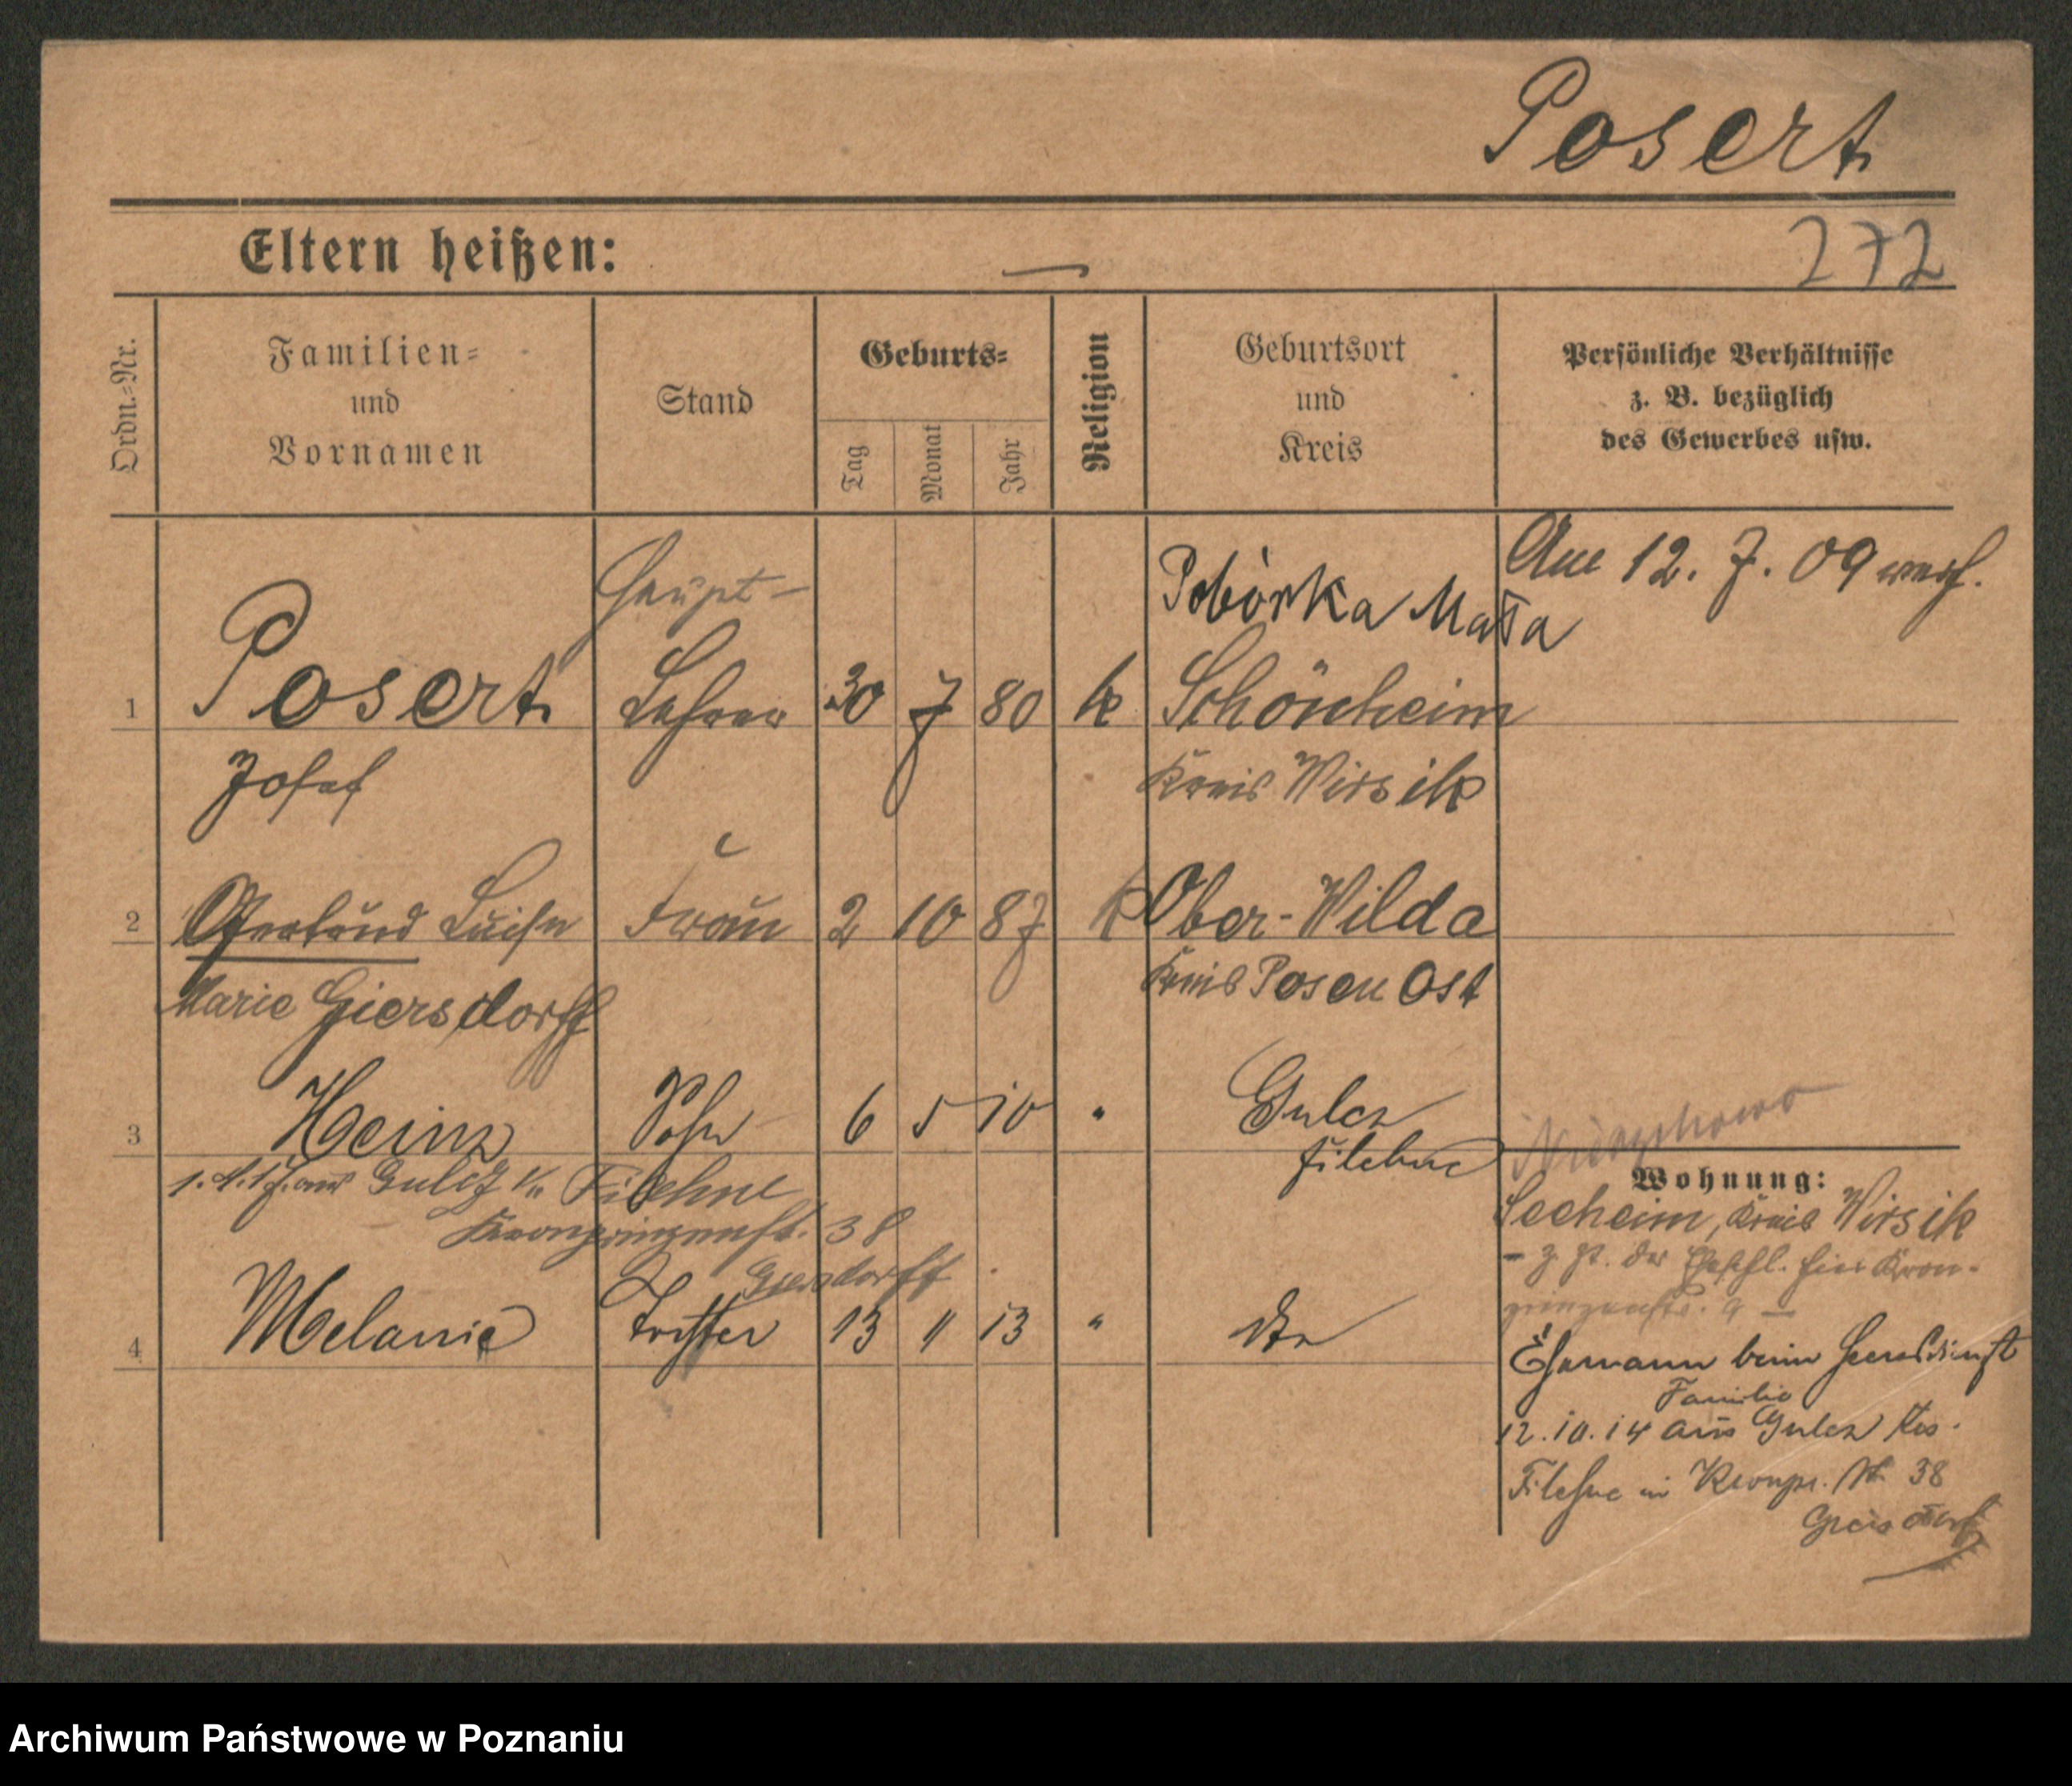 Posert
Eltern heißen: —
272
Ordn.-Nr.
Familien-
und
Vornamen
Stand
Geburts-
Tag
Monat
Jahr
Religion
Geburtsort
und
Kreis
Persönliche Verhältnisse
z. B. bezüglich
des Gewerbes usw.
Am 12. 7. 09 verh.
Haupt-
Pobórka Mała
1 Posert Lehrer 30 7 80 k Schönheim
Josef Kreis Wirsitz
2 Gertrud Luise Frau 2 10 87 k Ober-Wilda
Marie Giersdorff Kreis Posen Ost
3 Heinz Sohn 6 5 10 " Gulcz
Filehne
1. 4. 17. aus Gulcz Kr. Filehne
Kronprinzenst. 38
Giersdorff
4 Melanie Tochter 13 11 13 " dto
Wohnung:
Seeheim, Kreis Wirsitz
- z. Zt. der Eheschl. hier Kron-
prinzenstr. 9 -
Ehemann beim Heeresdienst
Familie
12.10.14 aus Gulcz Krs.
Filehne in Kronpr. St. 38
Giersdorf
Archiwum Państwowe w Poznaniu